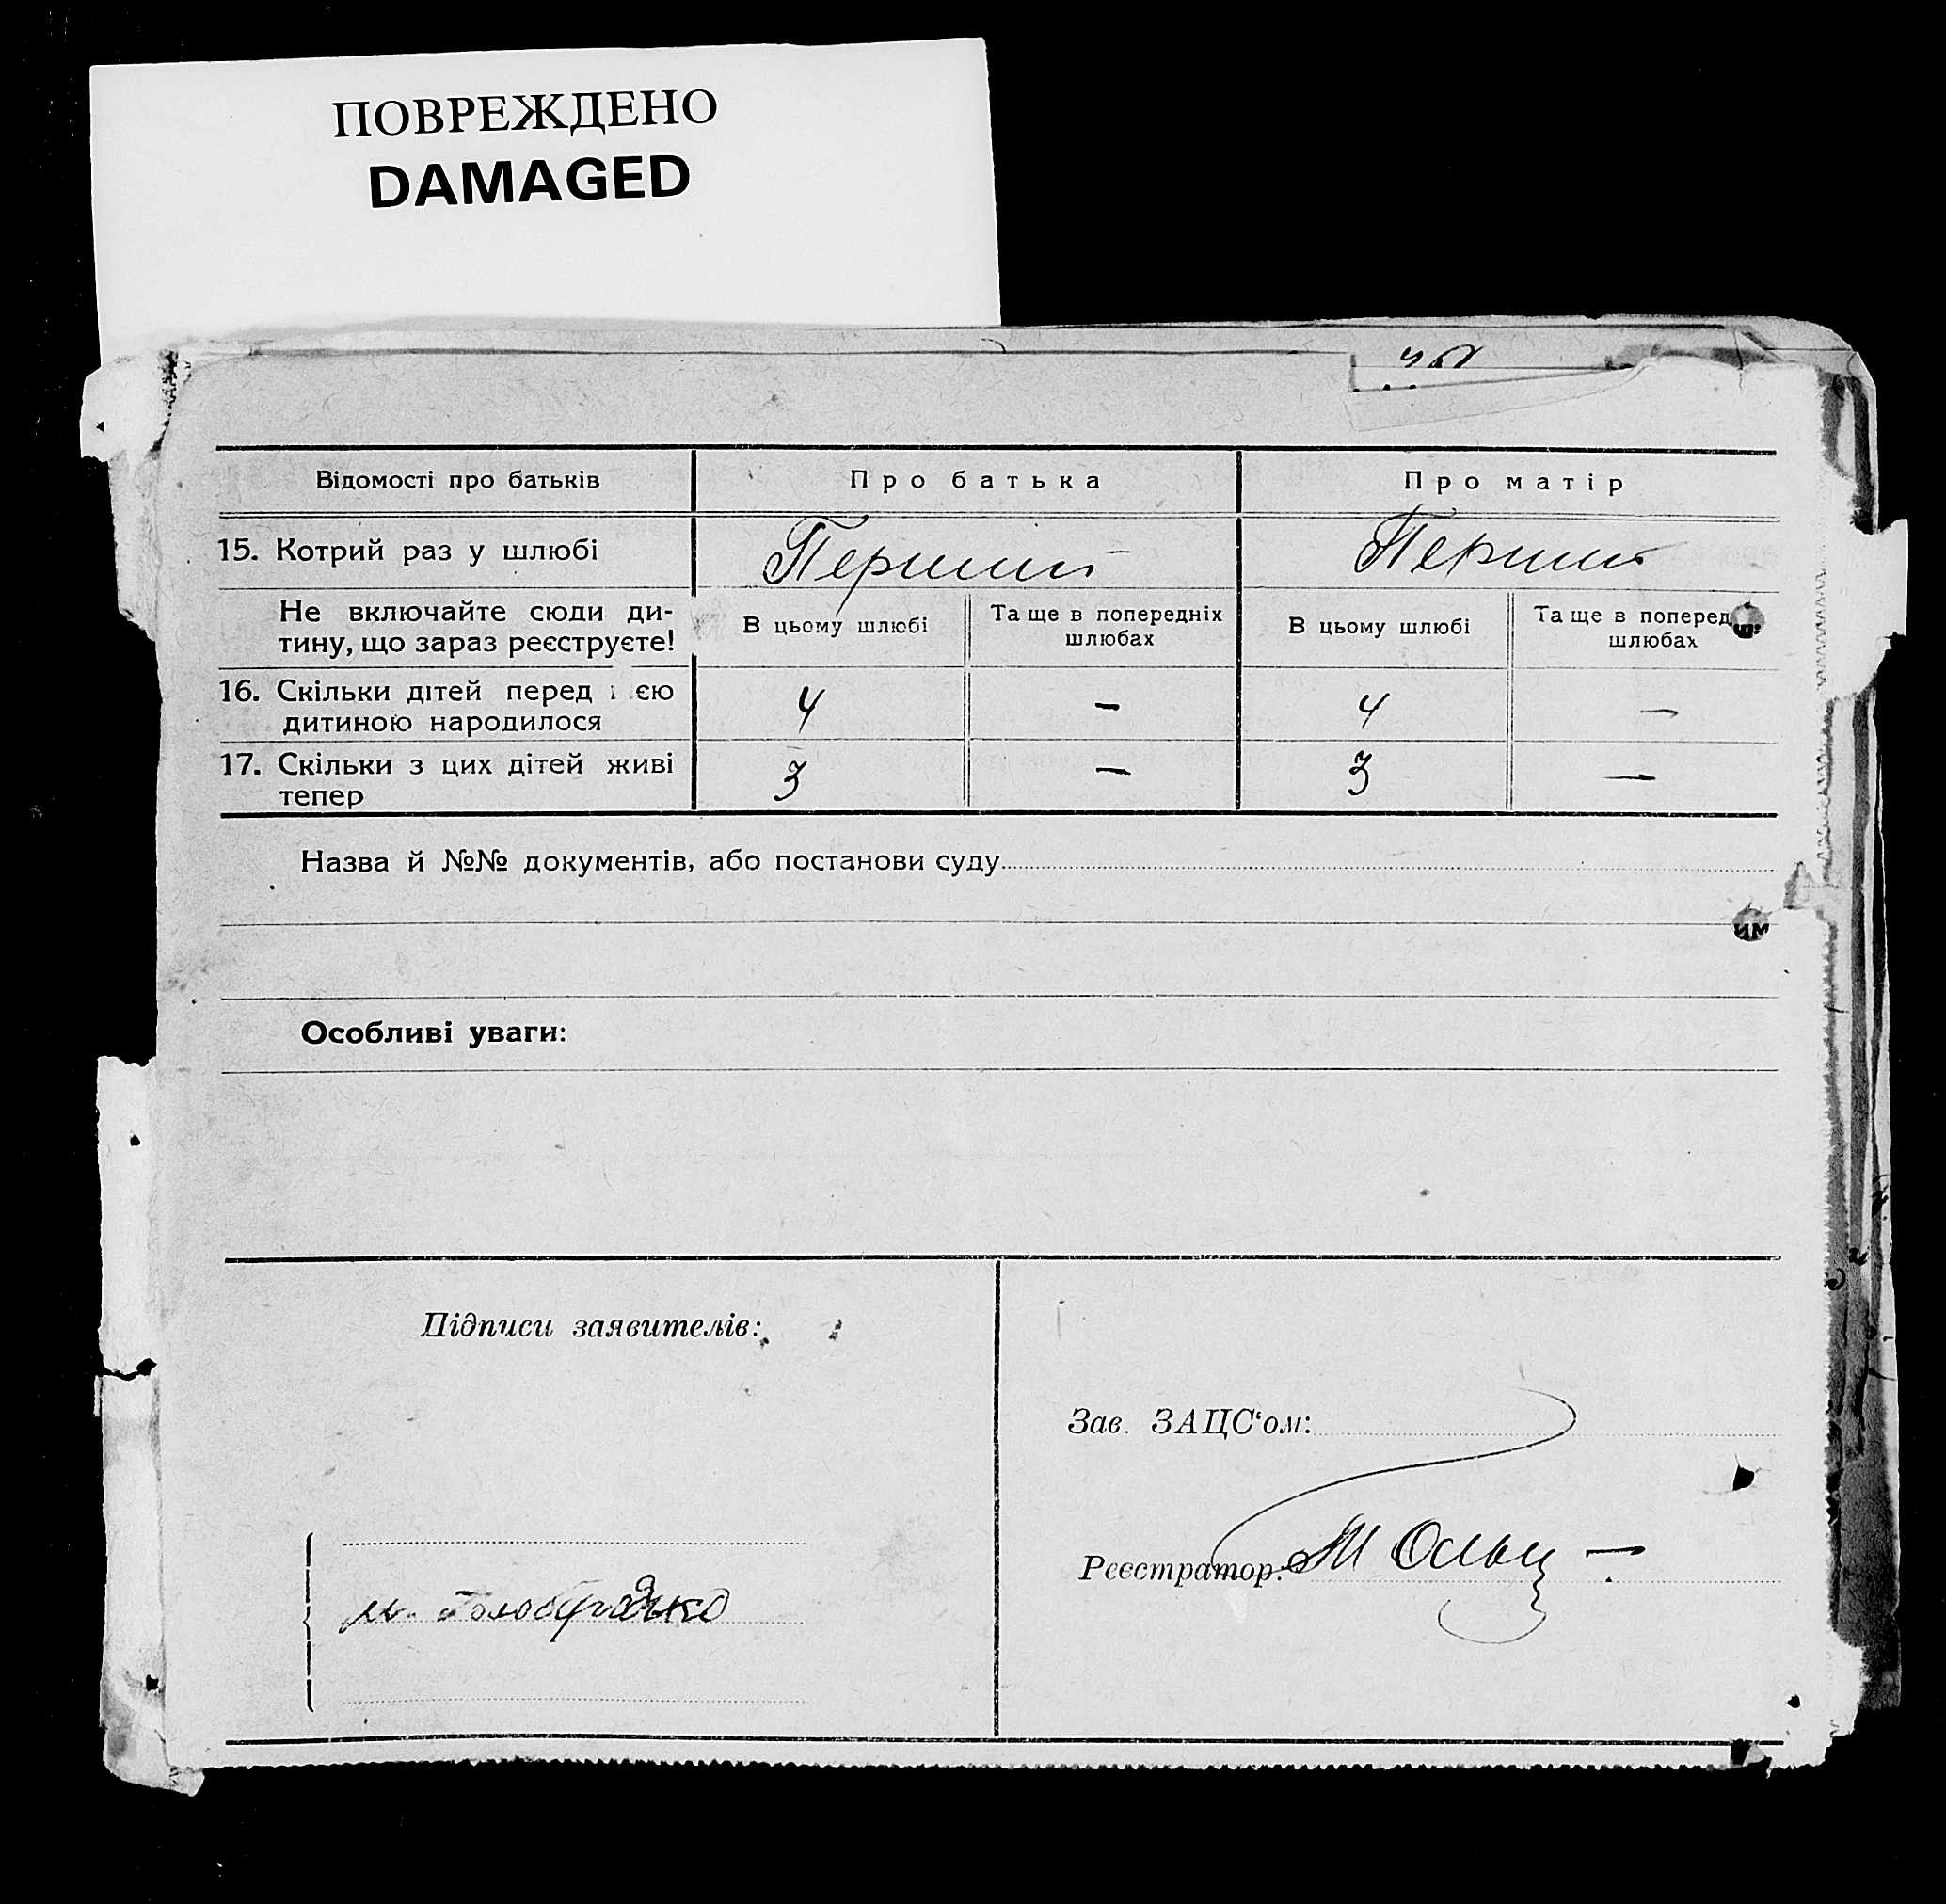 ПОВРЕЖДЕНО
DAMAGED
Відомості про батьків
Про батька
Про матір
15. Котрий раз у шлюбі
Перший
Перший
Не включайте сюди ди-
тину, що зараз реєструєте!
В цьому шлюбі
Та ще в попередніх
шлюбах
В цьому шлюбі
Та ще в поперед
шлюбах
16. Скільки дітей перед єю
дитиною народилося
4
–
4
–
17. Скільки з цих дітей живі
тепер
3
–
3
–
Назва й №№ документів, або постанови суду
им
Особливі уваги:
Підписи заявителів:
Зав. ЗАЦС‘ом:
Реєстратор:
м.